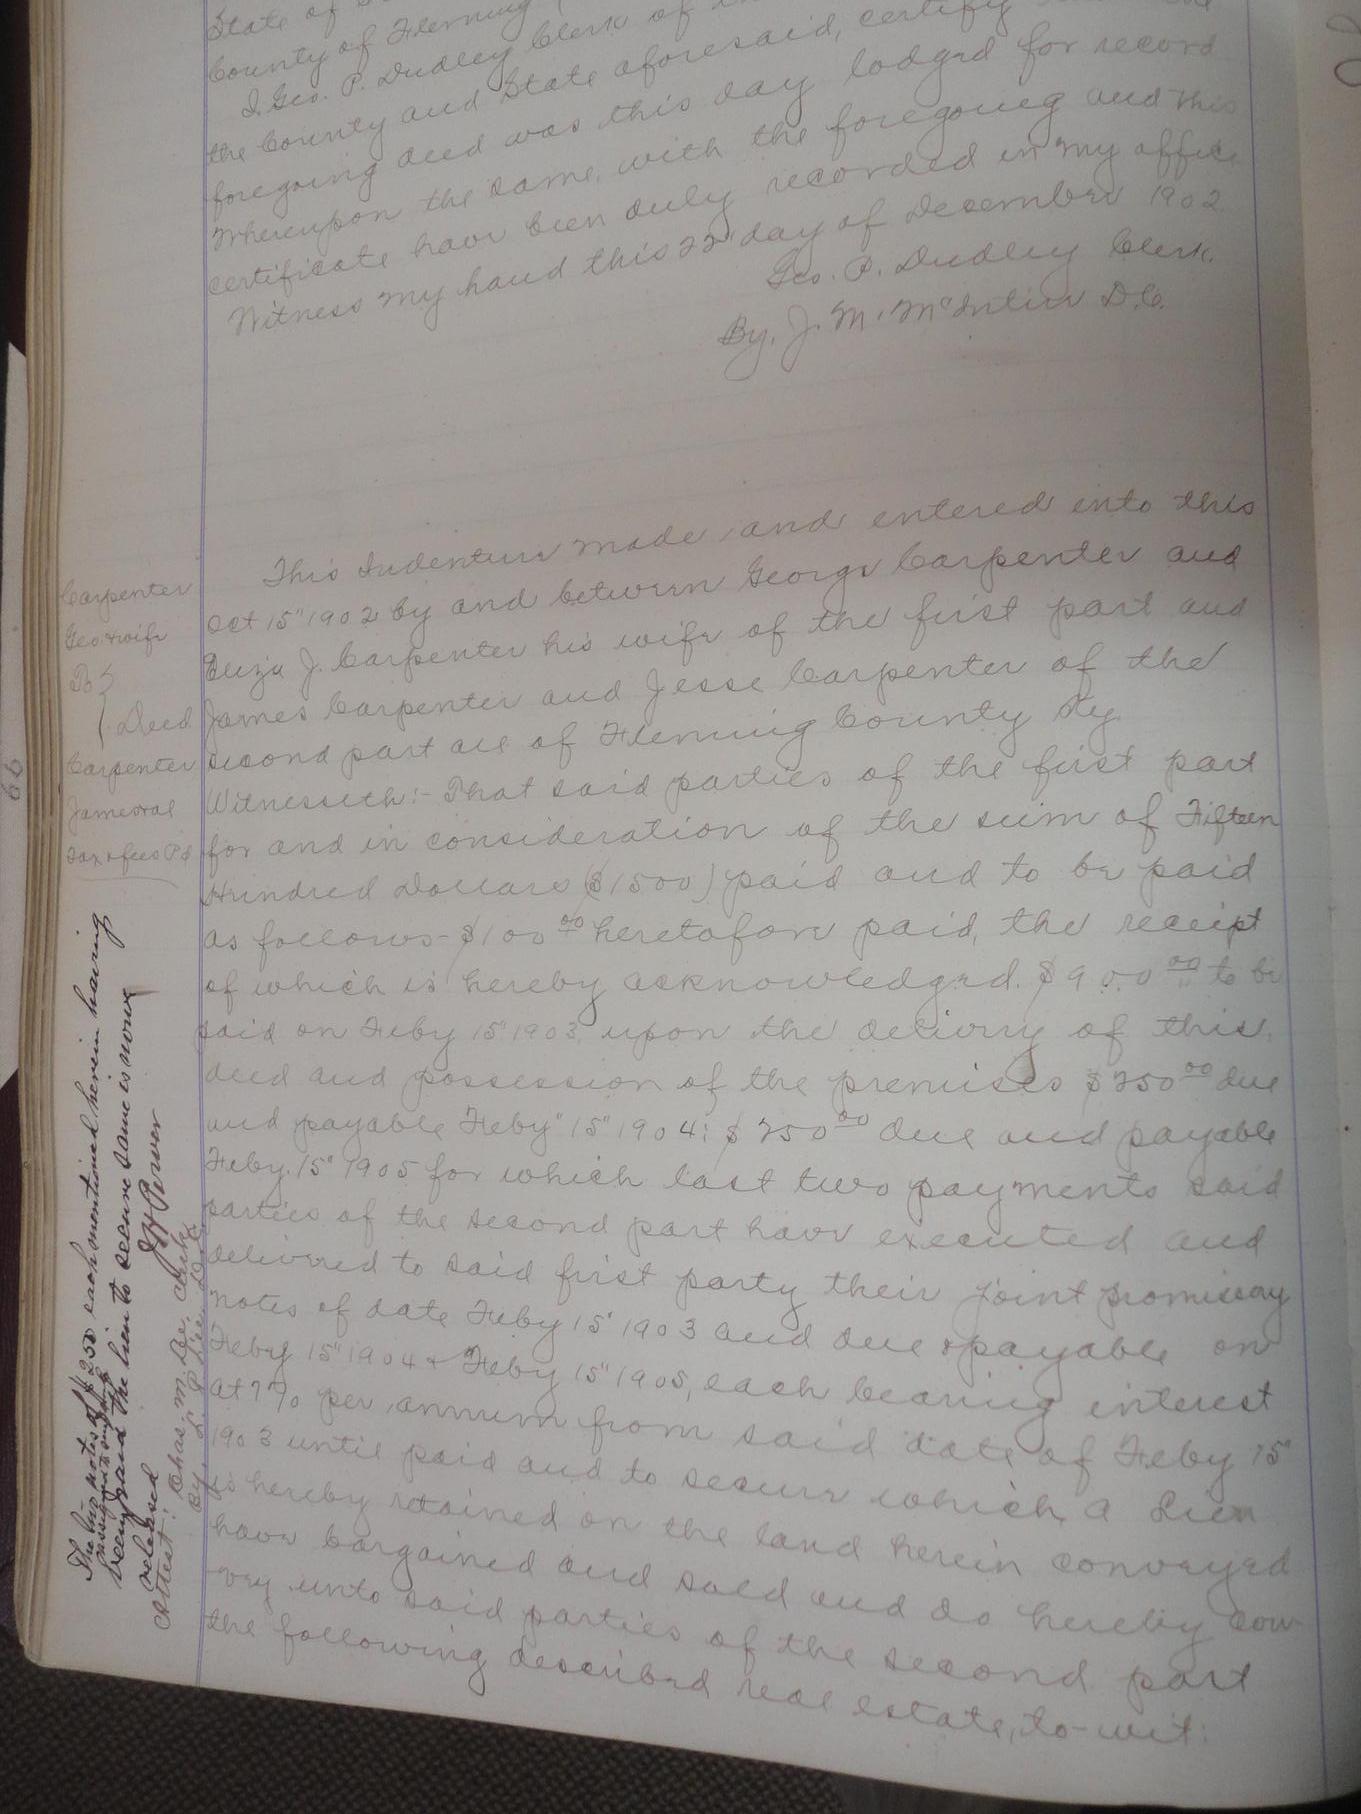 State of
County of Fleming
I, Geo. P. Dudley Clerk of
the County and State aforesaid, certify
foregoing deed was this day lodged for record
Whereupon the same, with the foregoing and this
certificate have been duly recorded in my office
Witness my hand this 22" day of December 1902
Geo. P. Dudley Clerk.
By, J. M. D.C.
This Indenture made and entered into this
Oct 15" 1902 by and between George Carpenter and
Eliza J. Carpenter his wife of the first part and
James Carpenter and Jesse Carpenter of the
second part all of Fleming County Ky.
Witnesseth:- That said parties of the first part
for and in consideration of the sum of Fifteen
Hundred Dollars ($1500) paid and to be paid
as follows- $100 00 heretofore paid, the receipt
of which is hereby acknowledged. $900 00 to be
paid on Feby 15" 1903, upon the delivery of this
deed and possession of the premises $250 00 due
and payable Feby" 15" 1904; $250 00 due and payable
Feby. 15" 1905 for which last two payments said
parties of the second part have executed and
delivered to said first party their joint promissory
notes of date Feby 15" 1903 and due & payable on
Feby 15" 1904 & Feby 15" 1905, each bearing interest
at 7% per annum from said date of Feby 15"
1903 until paid and to secure which a Lien
is hereby retained on the land herein conveyed
have bargained and sold and do hereby con-
vey unto said parties of the second part
the following described real estate, to-wit:
Carpenter
Geo & wife
To
Deed
Carpenter
James & al
Tax & fees Pd
The two notes of $250 each mentioned herein having
been paid the lien to secure same is now
released
Attest: Chas. M. Clerk
By
66